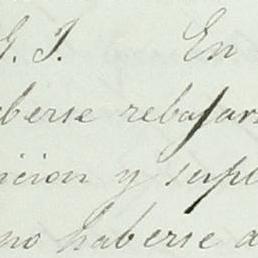 G. J. En
berse rebajar
icion y supl
no haberse a